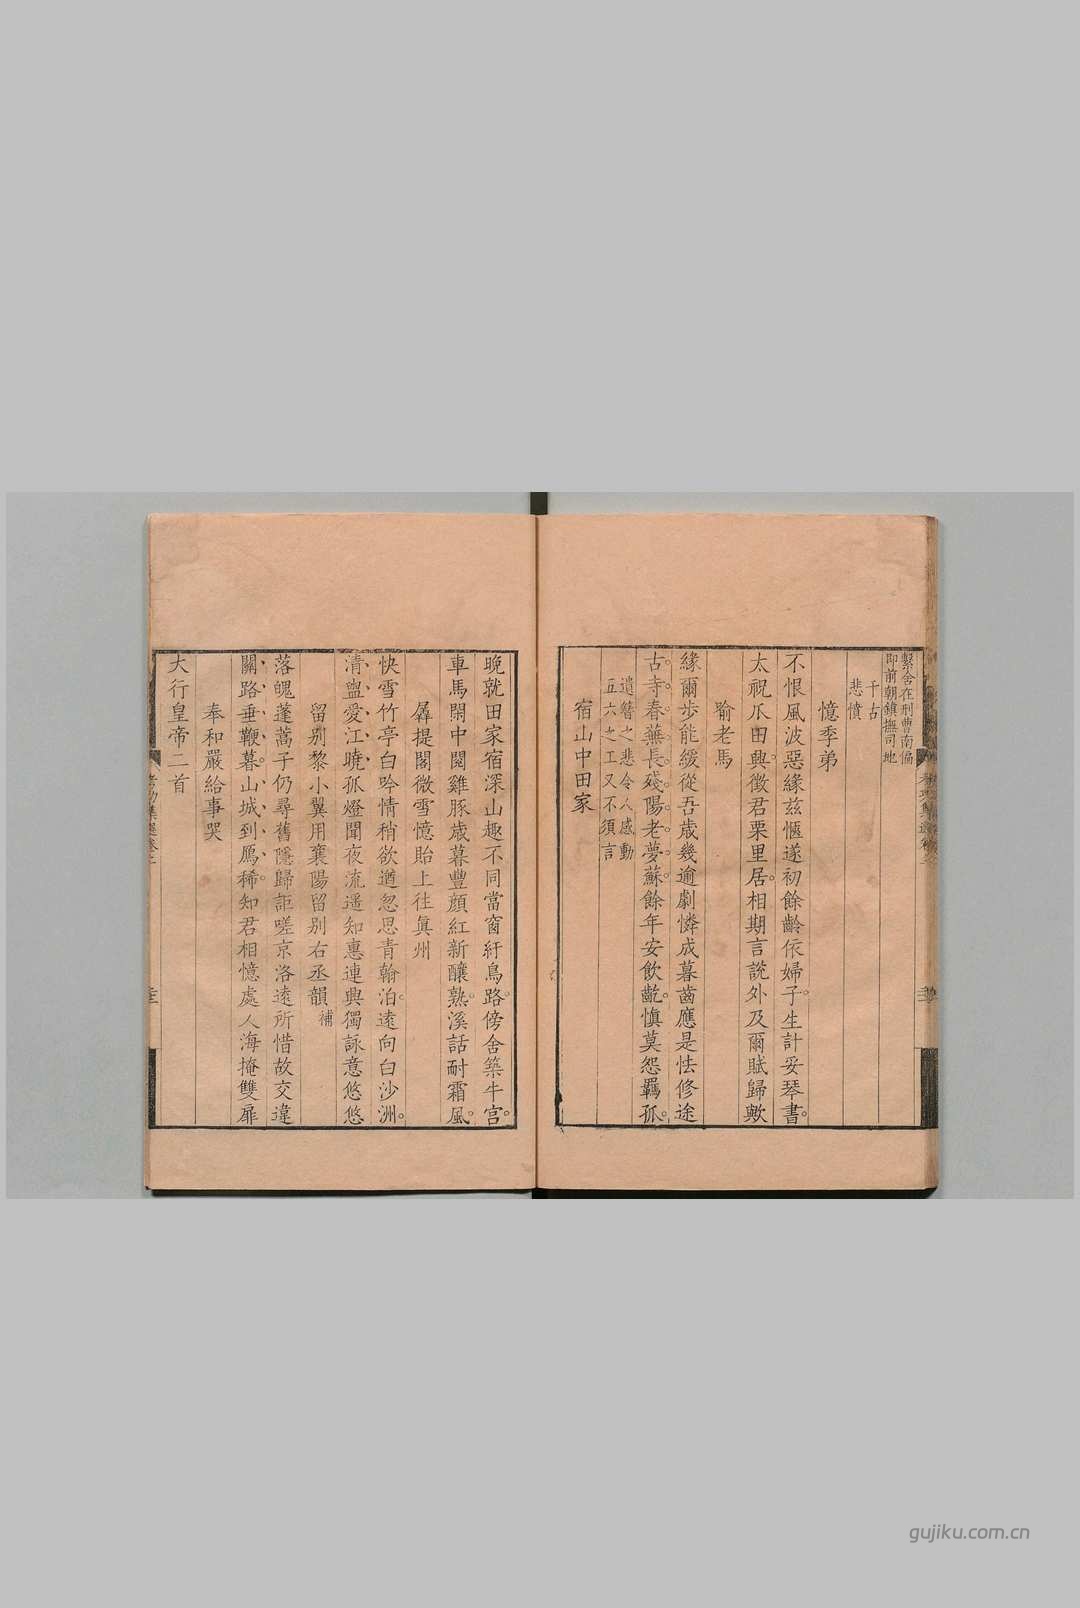 繫舍在刑曹南偏
即前朝鎮撫司地
千古
悲憤
憶季弟
不恨風波惡緣兹愜遂初餘齡依婦子生計妥琴書
太祝爪田興徵君栗里居相期言說外及爾賦歸歟
喻老馬
緣爾步能緩從吾歲幾逾劇憐成暮齒應是怯修途
古寺春蕪長殘陽老夢蘇餘年安飲齕慎莫怨羈孤
遺簪之悲令人感動
五六之工又不須言
宿山中田家
晚就田家宿深山趣不同當窗紆鳥路傍舍築牛宫
車馬閑中閱雞豚歲暮豐顔紅新釀熟溪話耐霜風
舜提閣微雪憶貽上往眞州
快雪竹亭白吟情稍欲遒忽思青翰泊遠向白沙洲
清盥愛江曉孤燈聞夜流遥知惠連興獨詠意悠悠
留别黎小翼用襄陽留别右丞韻 補
落魄蓬蒿子仍尋舊隱歸詎嗟京洛遠所惜故交違
關路垂鞭暮山城到鴈稀知君相憶處人海掩雙扉
奉和嚴給事哭
大行皇帝二首